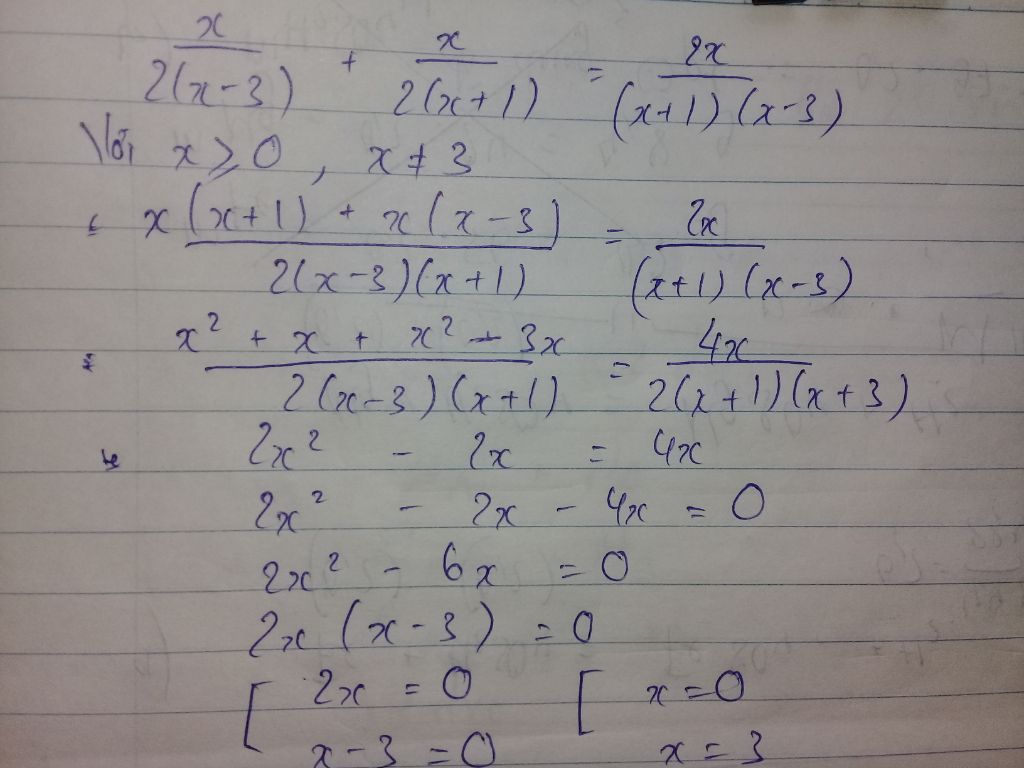 x/2(x-3) + x/2(x+1) = 2x/(x+1)(x-3)
Với x ⩾ 0, x ≠ 3
x(x+1) + x(x-3)/2(x-3)(x+1) = 2x/(x+1)(x-3)
x² + x + x² - 3x/2(x-3)(x+1) = 4x/2(x+1)(x+3)
2x² - 2x = 4x
2x² - 2x - 4x = 0
2x² - 6x = 0
2x(x-3) = 0
[ 2x = 0 [ x = 0
x-3 = 0 x = 3